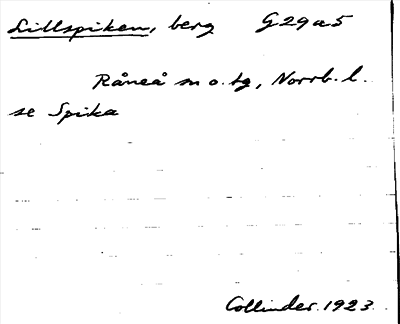 Lillspiken, berg G29a5
Råneå sn o. tg, Norrb. l.
se Spika
Collinder. 1923.